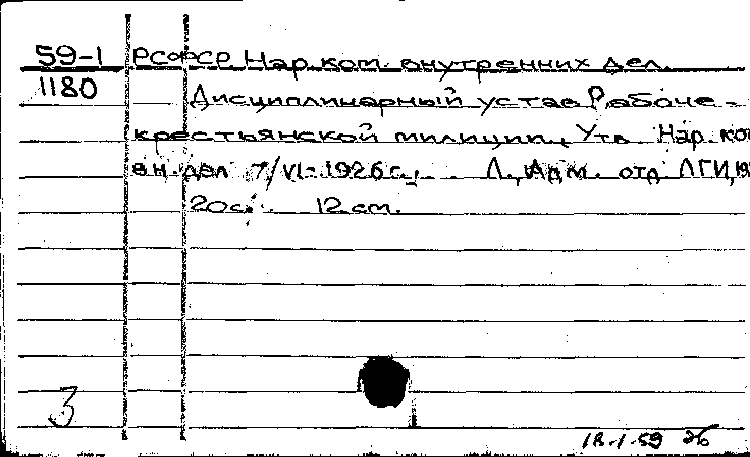 59-1 РСФСР Нар.ком. внутренних дел.
1180 Дисциплинарный устав Рабоче-
крестьянской милиции. Утв. Нар. ком
вн. дел 7/VI-1926 г. Л., Адм. отд ЛГИ, 19
20 с. 12 см.
3
18-1-59